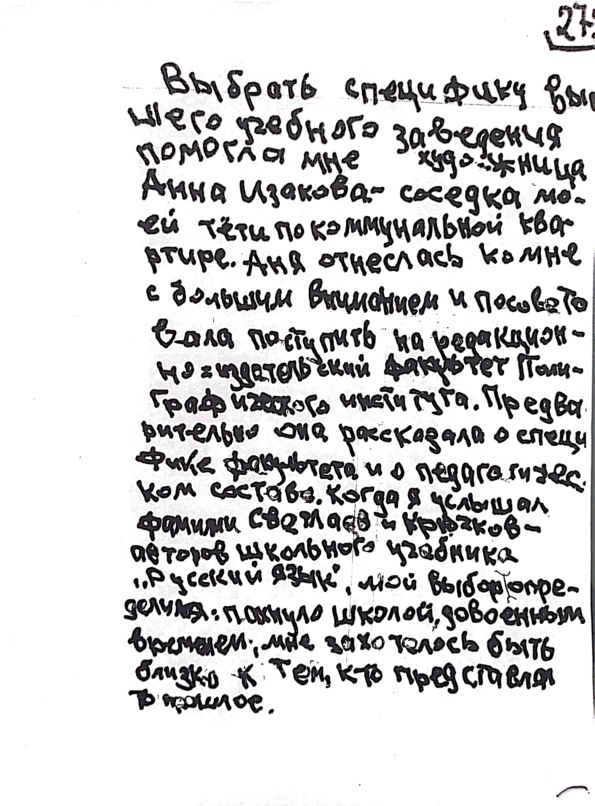 275
Выбрать специфику выс
шего учебного заведения
помогла мне художница
Анна Изакова- соседка мо-
ей тёти по коммунальной ква-
ртире. Аня отнеслась ко мне
с большим вниманием и посовето
вала поступить на редакцион-
но-издательский факультет Поли-
графического института. Предва
рительно она рассказала о специ
фике факультета и о педагогичес.
ком составе. Когда я услышал
фамилии Светлаев и Крючков-
авторов школьного учебника
"Русский язык", мой выбор опре-
делился: пахнуло школой, довоенным
временем; мне захотелось быть
близко к тем, кто представлял
то прошлое.